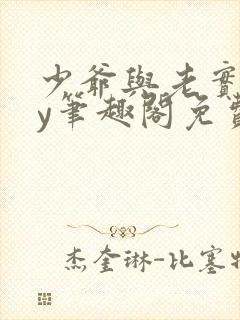 少爺與老實
y筆趣閣免費
杰奎琳-比塞特